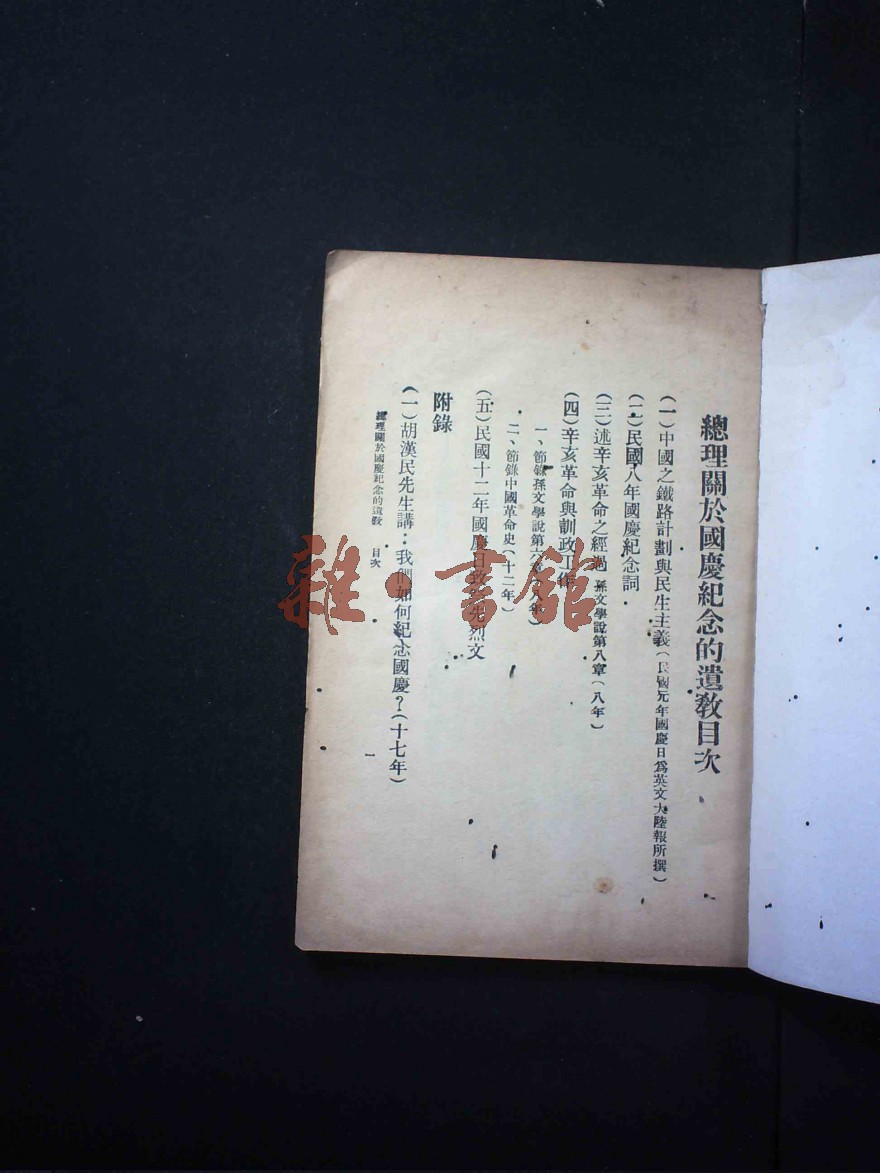 總理關於國慶紀念的遺教目次
(一)中國之鐵路計劃與民生主義(民國元年國慶日爲英文大陸報所撰)
(二)民國八年國慶紀念詞
(三)述辛亥革命之經過 孫文學說第八章(八年)
(四)辛亥革命與訓政工作
一、節錄孫文學說第六章(八年)
二、節錄中國革命史(十二年)
(五)民國十二年國慶日致祭先烈文
附錄
(一)胡漢民先生講:我們如何紀念國慶?(十七年)
總理關於國慶紀念的遺教 目次
一
雜·書館